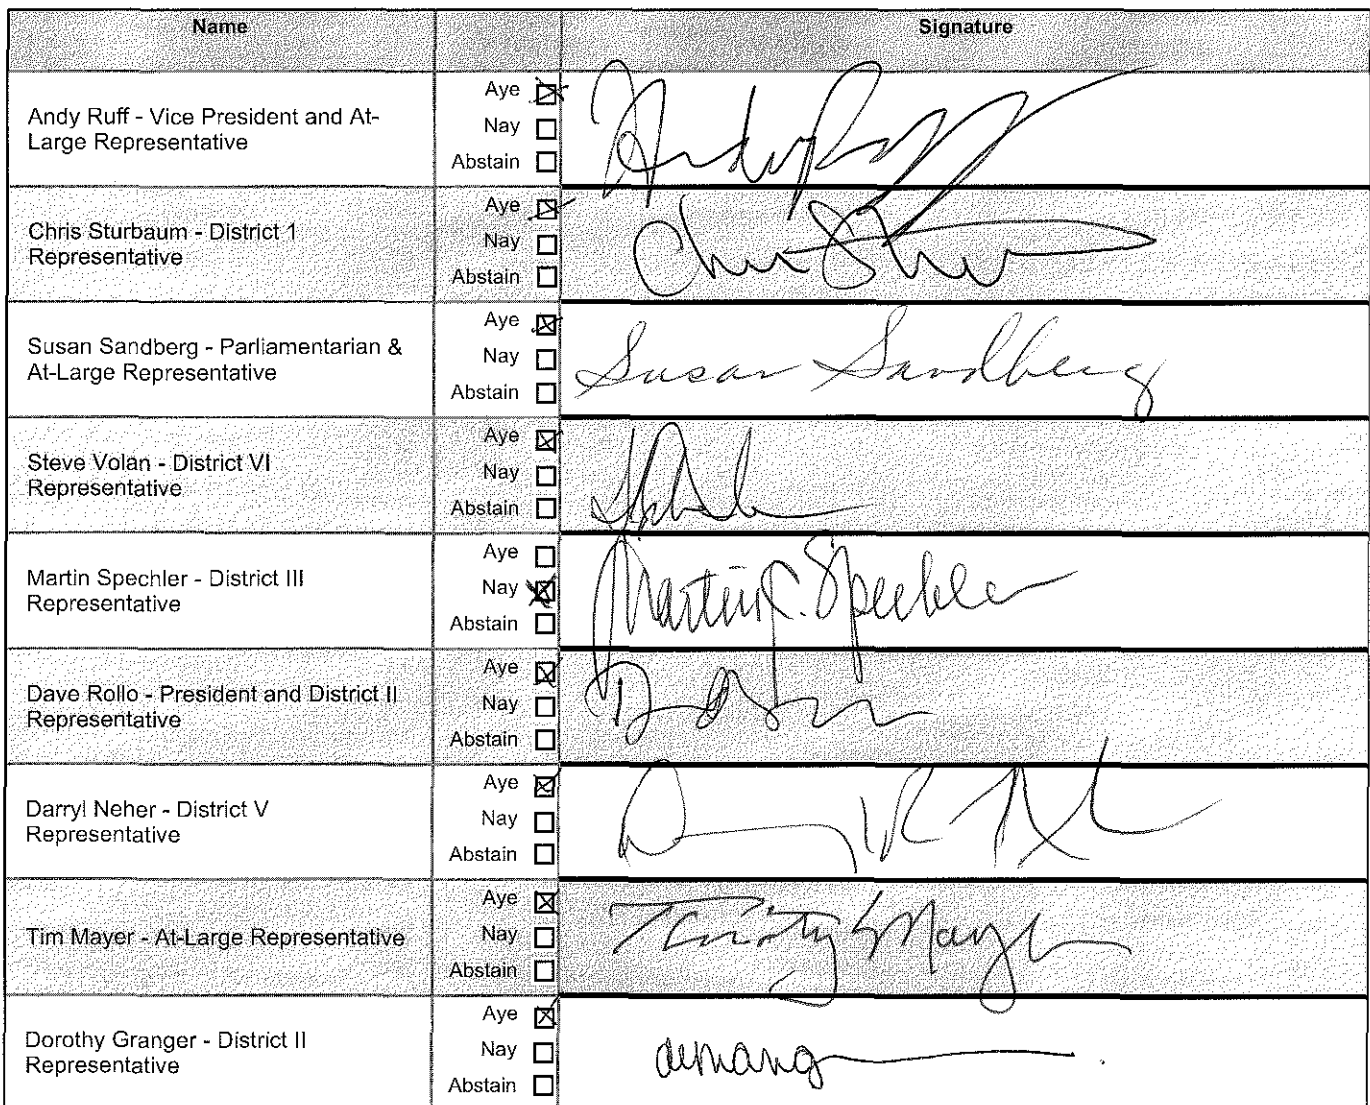 Name Signature
Andy Ruff - Vice President and At-
Large Representative
Aye ☒
Nay ☐
Abstain ☐
Chris Sturbaum - District 1
Representative
Aye ☒
Nay ☐
Abstain ☐
Susan Sandberg - Parliamentarian &
At-Large Representative
Aye ☒
Nay ☐
Abstain ☐
Susan Sandberg
Steve Volan - District VI
Representative
Aye ☒
Nay ☐
Abstain ☐
Martin Spechler - District III
Representative
Aye ☐
Nay ☒
Abstain ☐
Martin C. Spechler
Dave Rollo - President and District II
Representative
Aye ☒
Nay ☐
Abstain ☐
Darryl Neher - District V
Representative
Aye ☒
Nay ☐
Abstain ☐
Tim Mayer - At-Large Representative
Aye ☒
Nay ☐
Abstain ☐
Timothy Mayer
Dorothy Granger - District II
Representative
Aye ☒
Nay ☐
Abstain ☐